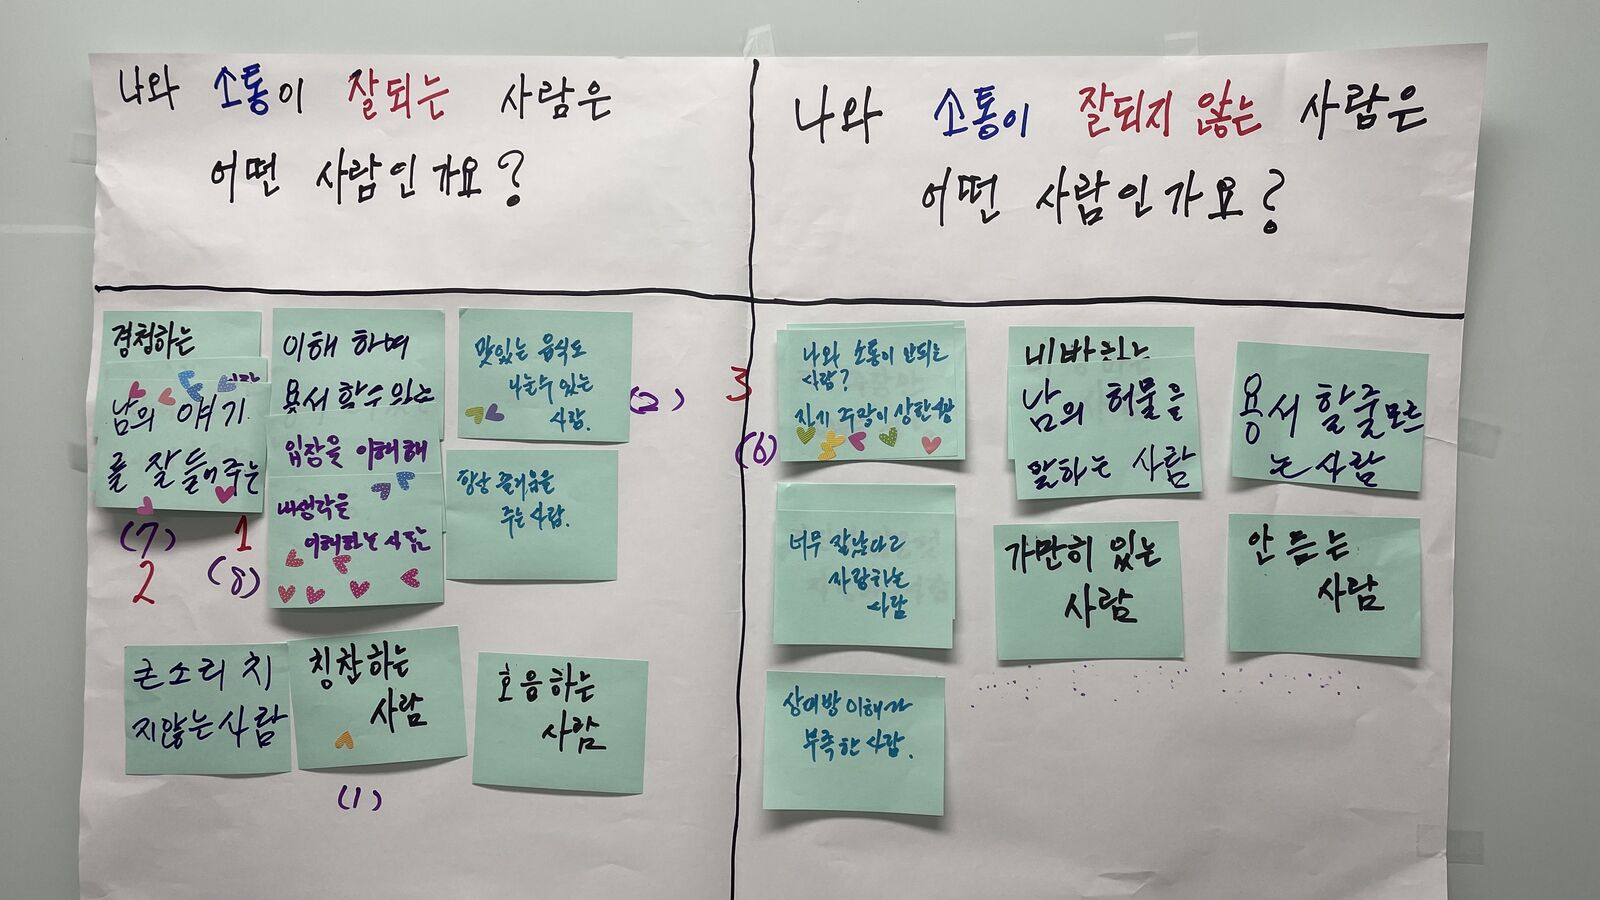 나와 소통이 잘되는 사람은
어떤 사람인가요?
경청하는
남의 얘기
를 잘 들어주는
(7)
2
이해 하며
용서 할수 있는
입장을 이해해
내생각을
이해하는 사람
1
(8)
맛있는 음식도
나눌수 있는
사람.
(2)
항상 즐거움을
주는 사람.
큰소리 치
지않는 사람
칭찬하는
사람
(1)
호응하는
사람
나와 소통이 잘되지 않는 사람은
어떤 사람인가요?
3
(6)
나와 소통이 안되는
사람?
자기 주장이 상한
너무 잘난다고
자랑하는
사람
상대방 이해가
부족한 사람.
비방하는
남의 허물을
말하는 사람
가만히 있는
사람
용서 할줄모르
는 사람
안 듣는
사람